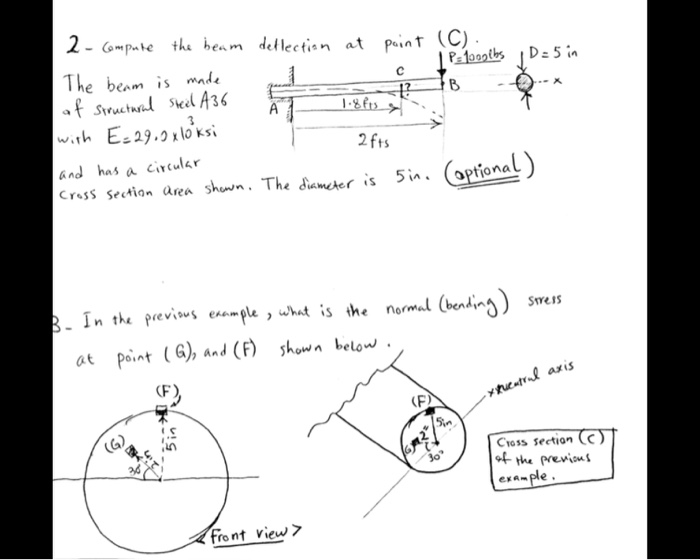 2 - Compute the beam deflection at point (C).
The beam is made
of structural steel A36
with E = 29.0 x 10³ ksi
and has a circular
cross section area shown. The diameter is 5 in. (optional)
P = 1000 lbs
D = 5 in
C
B
x
A
?
1.8 fts
2 fts
3 - In the previous example, what is the normal (bending) stress
at point (G), and (F) shown below.
(F)
(G)
5 in
30°
Front view >
(F)
5 in
2"
G
30°
x neutral axis
Cross section (C)
of the previous
example.